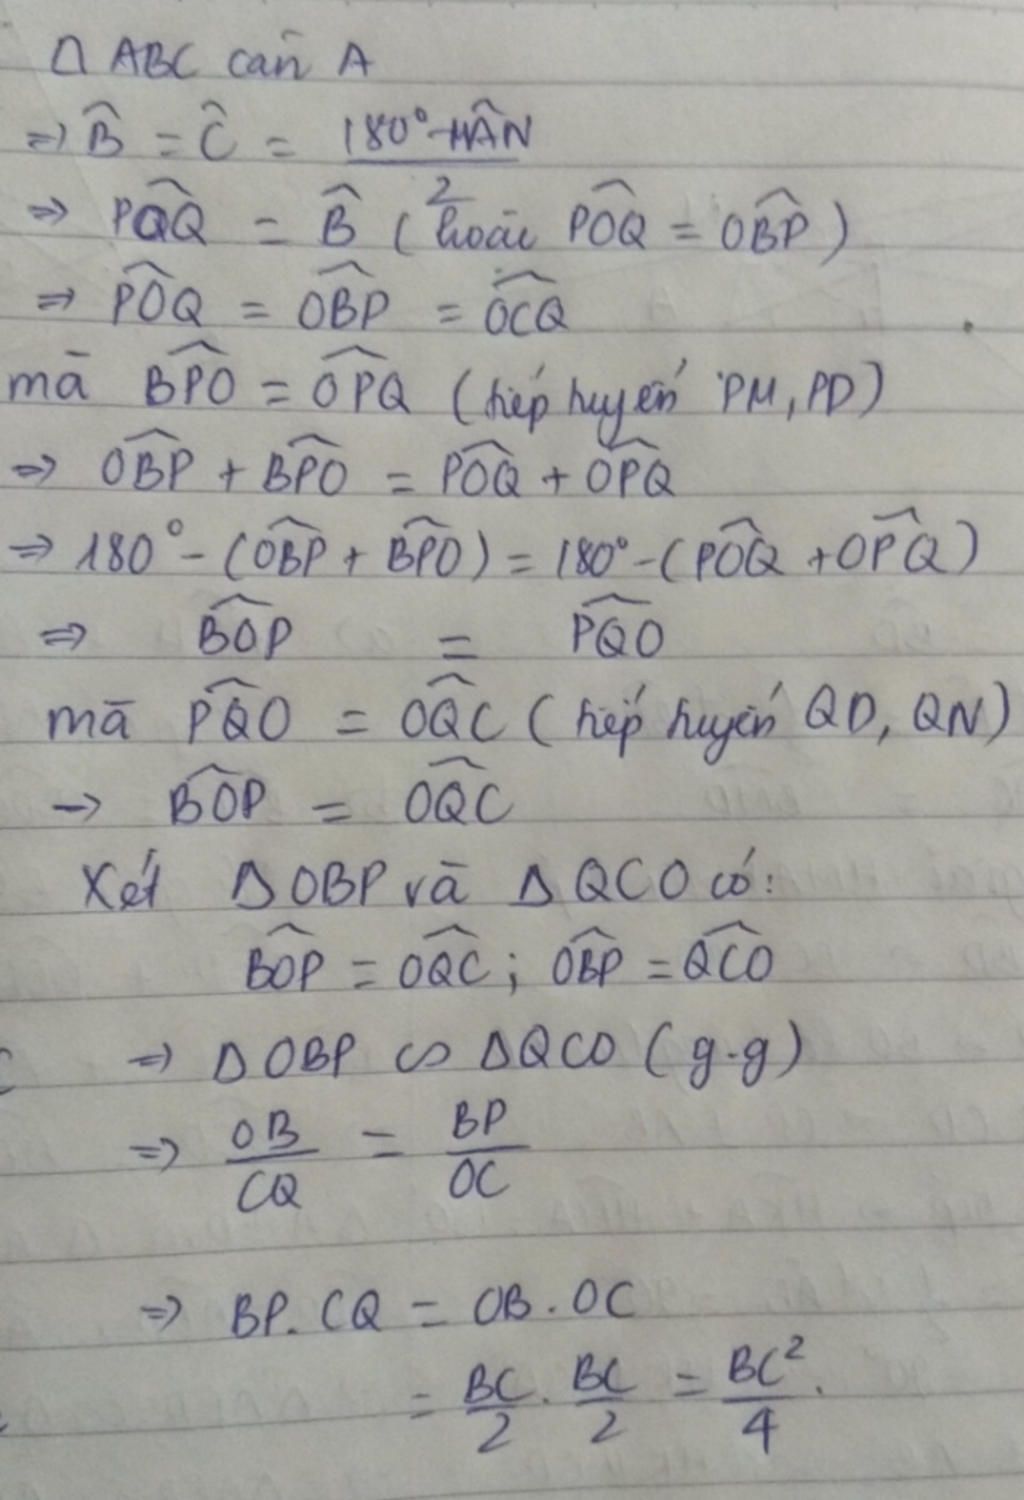 Δ ABC cân A
=> B̂ = Ĉ = (180° - MÂN)/2
=> PÔQ = B̂ ( hoặc PÔQ = OB̂P )
=> PÔQ = OB̂P = OĈQ
mà BP̂O = OP̂Q ( tiếp tuyến PM, PD )
=> OB̂P + BP̂O = PÔQ + OP̂Q
=> 180° - (OB̂P + BP̂O) = 180° - (PÔQ + OP̂Q)
=> BÔP = PQ̂O
mà PQ̂O = OQ̂C ( tiếp tuyến QD, QN )
-> BÔP = OQ̂C
Xét Δ OBP và Δ QCO có:
BÔP = OQ̂C ; OB̂P = QĈO
=> Δ OBP ∽ Δ QCO ( g.g )
=> OB/CQ = BP/OC
=> BP. CQ = OB. OC
= BC/2 . BC/2 = BC²/4 .